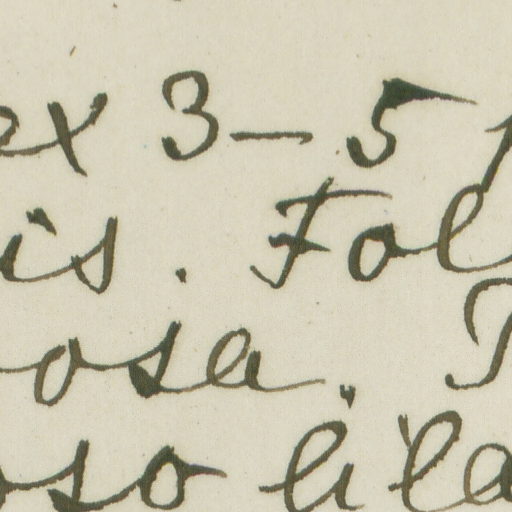 ex 3-5
is. Fol
osa.
oso lila